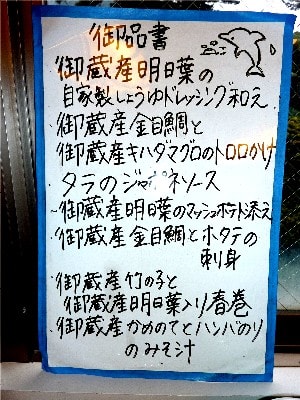 御品書
御蔵産明日葉の
自家製しょうゆドレッシング和え
御蔵産金目鯛と
御蔵産キハダマグロのトロロかけ
タラのジャポネソース
御蔵産明日葉のマッシュポテト添え
御蔵産金目鯛とホタテの
刺身
御蔵産竹の子と
御蔵産明日葉入り春巻
御蔵産かめのてとハンバのり
のみそ汁